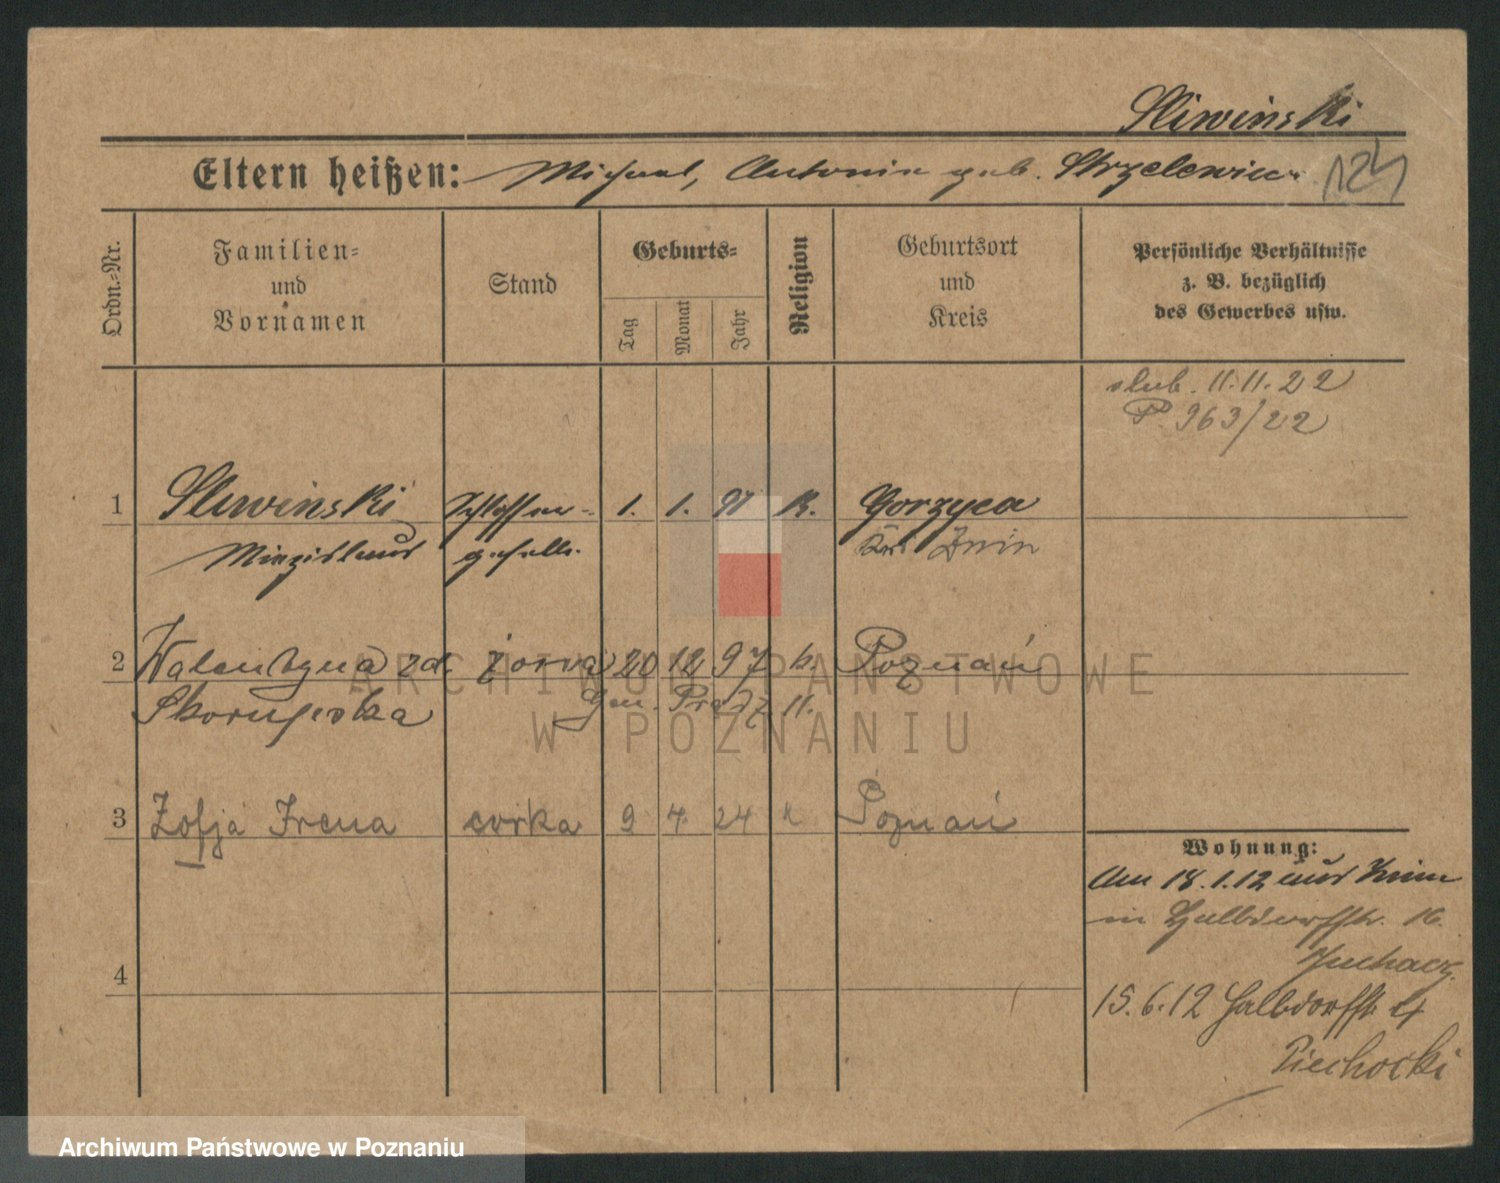 Sliwinski
Eltern heißen: Michael, Antonie geb. Strzelewicz
Ordn.-Nr.
Familien-
und
Vornamen
Stand
Geburts-
Tag
Monat
Jahr
Religion
Geburtsort
und
Kreis
Persönliche Verhältnisse
z. B. bezüglich
des Gewerbes usw.
slub. 11.11.22
P. 963/22
1 Sliwinski Schlosser- 1. 1. 91 K. Gorzyca
Miezislaus geselle. Krs. Znin
2 Walentyna zd. żona 20 12 97 k. Poznań
3 Zofja Irena corka 9 7. 24 k Poznań
Wohnung:
Am 18.1.12 aus Znin
in Halbdorfstr. 16.
15.6.12 Halbdorfstr 4
Piechocki
4
ARCHIWUM PAŃSTWOWE
W POZNANIU
Archiwum Państwowe w Poznaniu